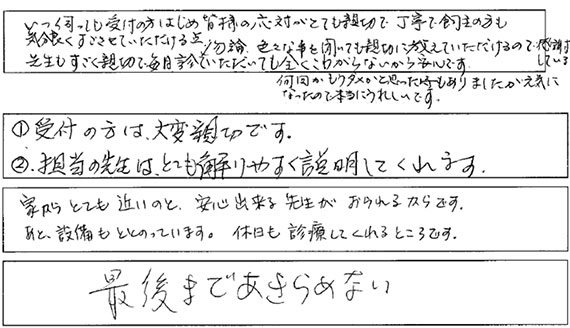 いつ伺っても受付の方はじめ皆様の応対がとても親切で丁寧で飼主の方も
気分良くすごさせていただける点、勿論、色々な事を聞いても親切に教えていただけるので感謝
している
先生もすごく親切で毎日診ていただいても全くこわがらないから安心です。
何回かもうダメかと思った時もありましたが元気に
なったので本当にうれしいです。
①受付の方は、大変親切です。
②、担当の先生は、とても解りやすく説明してくれます。
家からとても近いのと、安心出来る先生がおられるからです。
あと、設備もととのっています。休日も診療してくれるところです。
最後まであきらめない